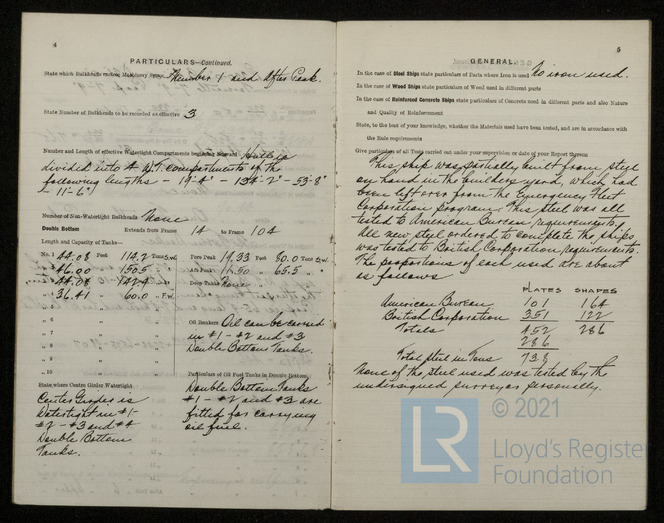 4
PARTICULARS—Continued.
State which Bulkheads enclose Machinery Space Number 1 and After Peak.
State Number of Bulkheads to be recorded as effective 3
Number and Length of effective Watertight Compartments beginning Hull is
divided into 4 W.T. compartments of the
following lengths -
- 11'-6"
Number of Non-Watertight Bulkheads None
Double Bottom Extends from Frame 14 to Frame 104
Length and Capacity of Tanks—
No. 1 44.08 Feet 114.2 Tons S.W. Fore Peak 19.33 Feet 80.0 Tons S.W.
2 46.00 " 150.5 " Aft Peak 11.50 " 65.5 "
3 44.08 " 142.9 " Deep Tanks None
4 36.41 " 60.0 " F.W.
5 " "
6 " "
7 " "
8 " "
9 " "
10 " "
Oil Bunkers Oil can be carried
in #1 - #2 and #3
Double Bottom Tanks.
State where Centre Girder Watertight
Center Girder is
Watertight in #1-
#2 - #3 and #4
Double Bottom
Tanks.
Particulars of Oil Fuel Tanks in Double Bottom,
Double Bottom Tanks
#1 - #2 and #3 are
fitted for carrying
oil fuel.
5
GENERAL.
In the case of Steel Ships state particulars of Parts where Iron is used No iron used.
In the case of Wood Ships state particulars of Wood used in different parts
In the case of Reinforced Concrete Ships state particulars of Concrete used in different parts and also Nature
and Quality of Reinforcement
State, to the best of your knowledge, whether the Materials used have been tested, and are in accordance with
the Rule requirements
Give particulars of all Tests carried out under your supervision or date of your Report thereon
This ship was partially built from steel
on hand in the builders yard, which had
been left over from the Emergency Fleet
Corporation program. This steel was all
tested to American Bureau requirements,
all new steel ordered to complete the ships
was tested to British Corporation requirements.
The proportions of each used are about
as follows
PLATES SHAPES
American Bureau 101 164
British Corporation 351 122
Totals 452 286
286
Total steel in Tons 738
None of the steel used was tested by the
undersigned surveyor personally.
© 2021
LR
Lloyd's Register
Foundation